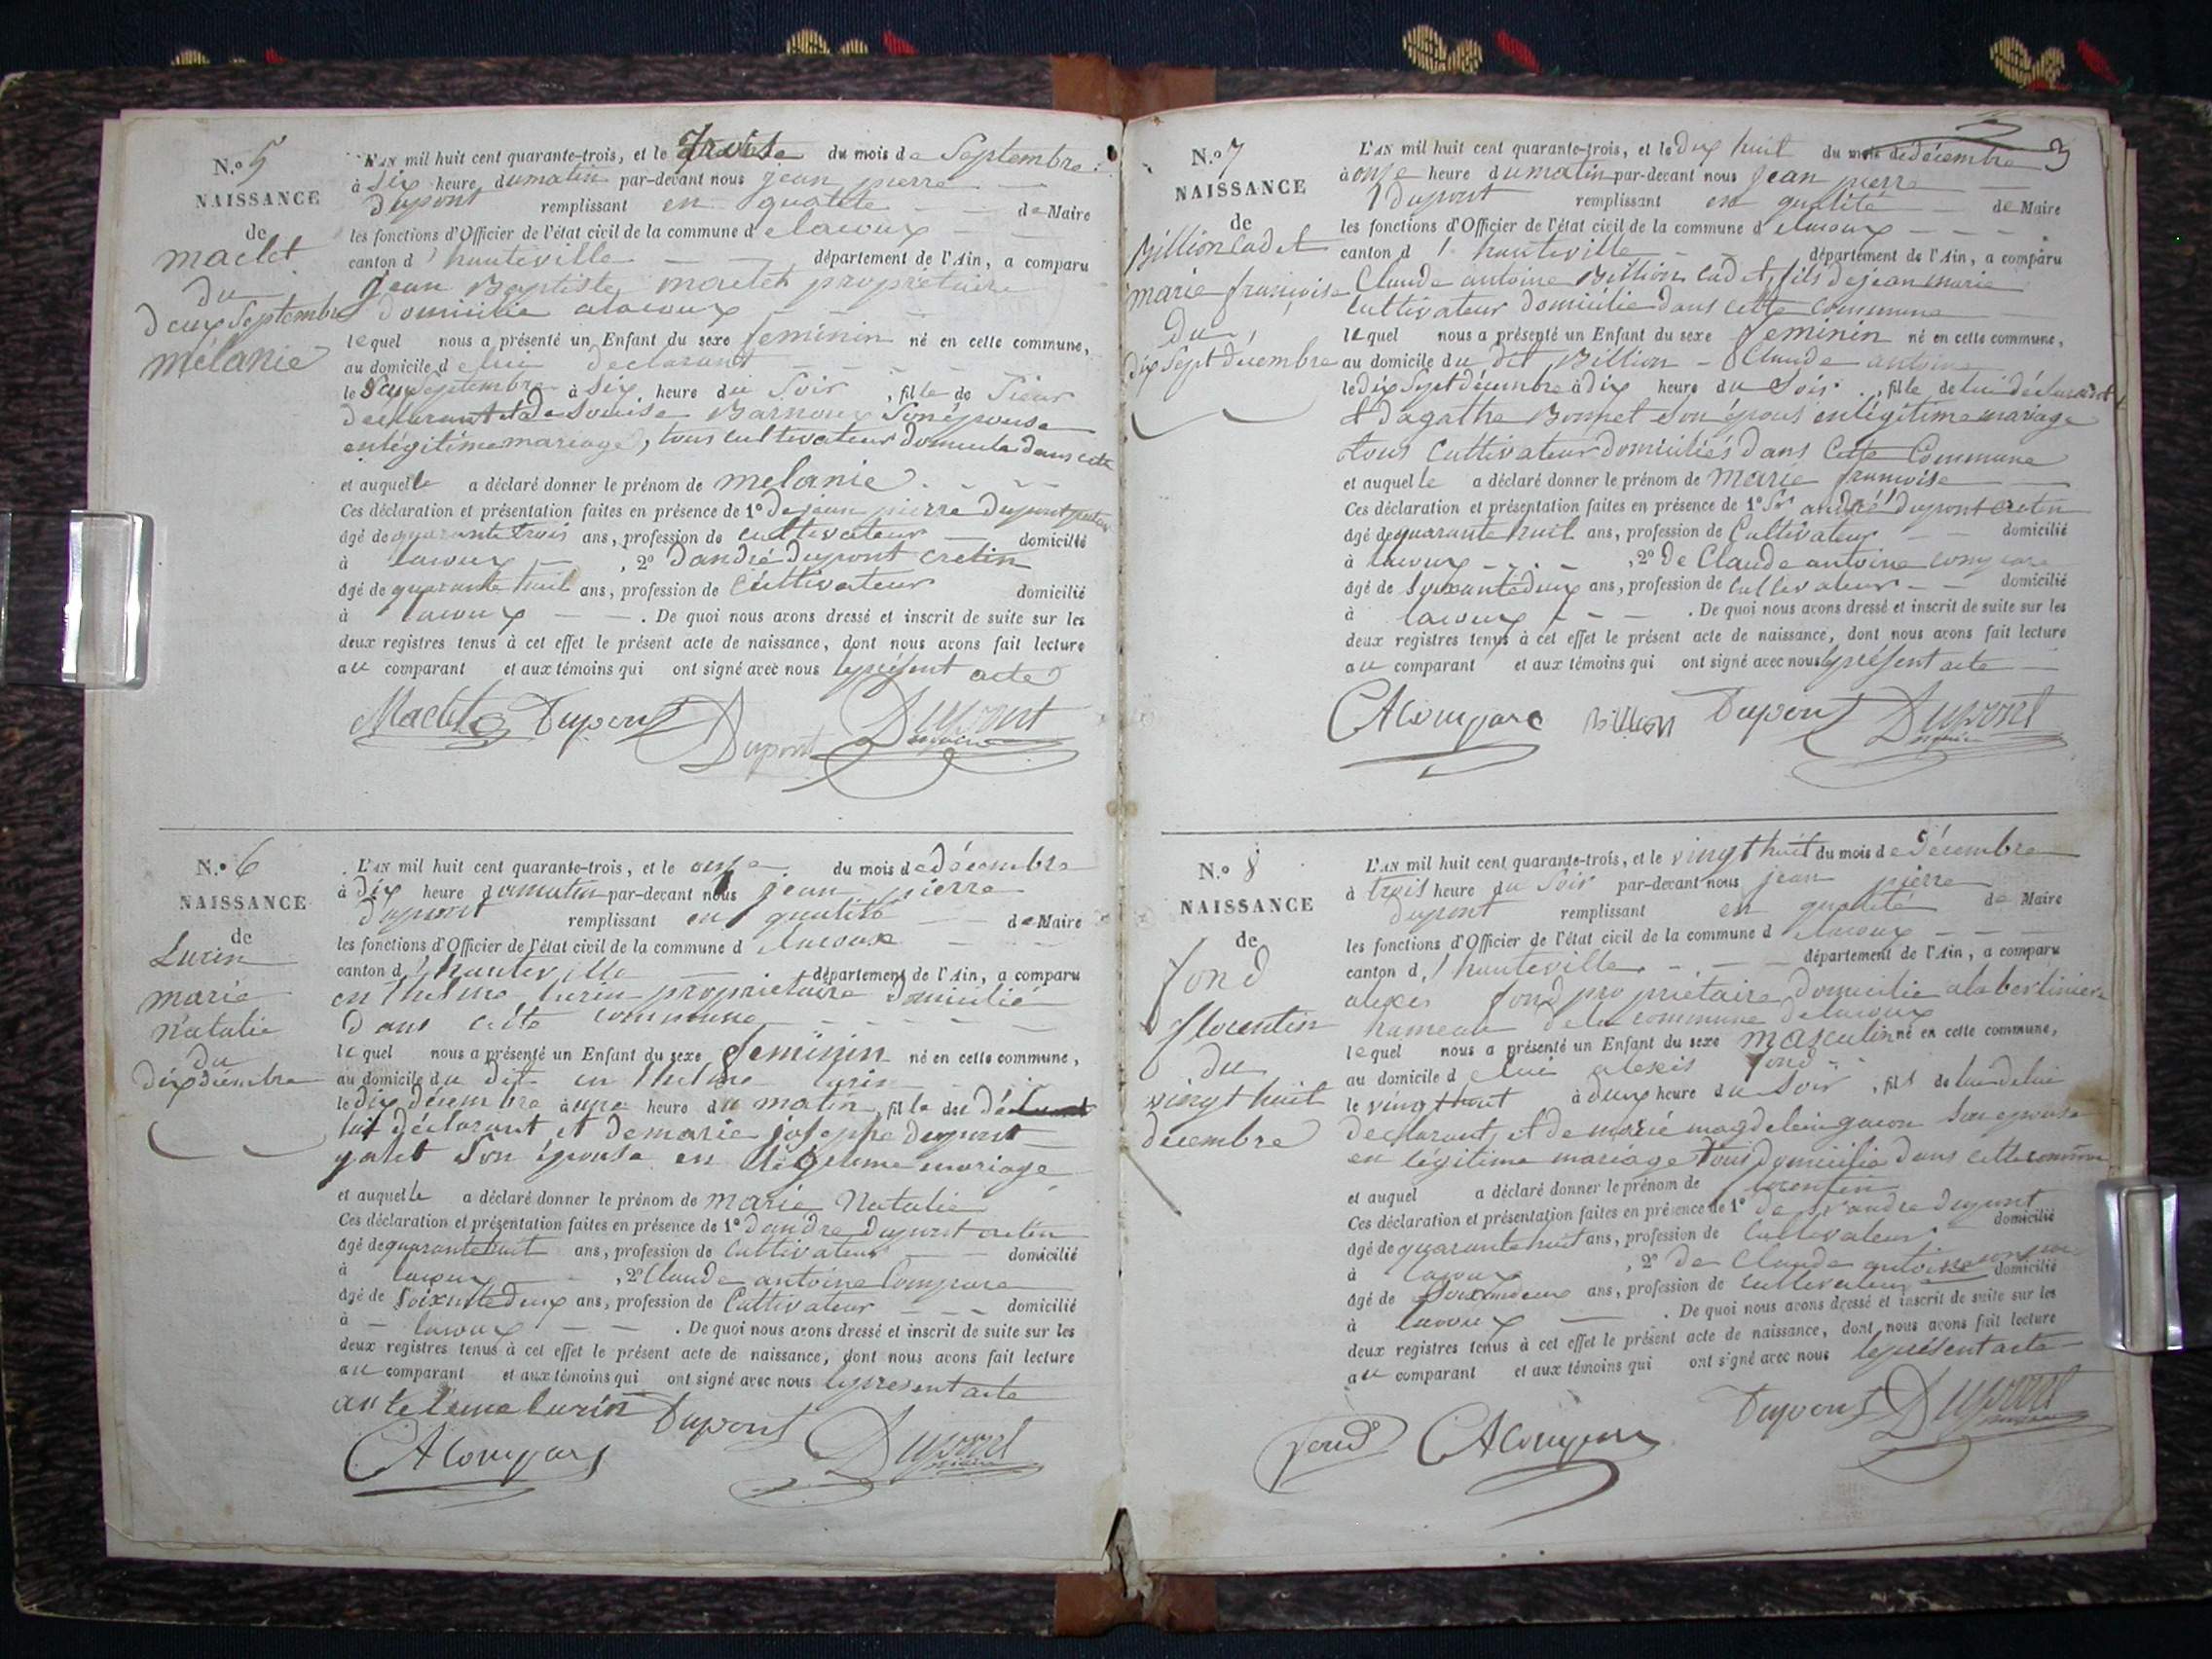 N.o 5
NAISSANCE
de
maclet
du
deux Septembre
mélanie
L'AN mil huit cent quarante-trois, et le trois du mois de Septembre
à Six heure du matin par-devant nous jean pierre
Dupont remplissant en qualité de Maire
les fonctions d'Officier de l'état civil de la commune de lacoux
canton d'hauteville département de l'Ain, a comparu
jean Baptiste maclet propriétaire
domicilié alacoux
lequel nous a présenté un Enfant du sexe feminin né en cette commune,
au domicile de lui declarant
le deux Septembre à Six heure du Soir, fille de Sieur
declarant et de Louise Barnoux Son épouse
en légitime mariage, tous cultivateur domicilié dans cette
et auquelle a déclaré donner le prénom de melanie
Ces déclaration et présentation faites en présence de 1o De jean pierre Dupont
âgé de quarante trois ans, profession de cultivateur domicilié
à lacoux, 2o D'andré Dupont cretin
âgé de quarante huit ans, profession de Cultivateur domicilié
à lacoux. De quoi nous avons dressé et inscrit de suite sur les
deux registres tenus à cet effet le présent acte de naissance, dont nous avons fait lecture
au comparant et aux témoins qui ont signé avec nous le présent acte
Maclet Dupont Dupont Dupont
N.o 6
NAISSANCE
de
Lurin
marie
Natalie
du
dix décembre
L'AN mil huit cent quarante-trois, et le onze du mois de décembre
à dix heure du matin par-devant nous jean pierre
dupont remplissant en qualité de Maire
les fonctions d'Officier de l'état civil de la commune de lacoux
canton d'hauteville département de l'Ain, a comparu
en thelme lurin propriétaire domicilié
Dans cette commune
lequel nous a présenté un Enfant du sexe feminin né en cette commune,
au domicile du dit en thelme lurin
le dix décembre à une heure du matin, fille de
lui déclarant et de marie josephe dupont
Son épouse en légitime mariage
et auquelle a déclaré donner le prénom de marie Natalie
Ces déclaration et présentation faites en présence de 1o d'andre dupont cretin
âgé de quarante huit ans, profession de Cultivateur domicilié
à lacoux, 2o Claude antoine Compare
âgé de Soixante deux ans, profession de Cultivateur domicilié
à lacoux. De quoi nous avons dressé et inscrit de suite sur les
deux registres tenus à cet effet le présent acte de naissance, dont nous avons fait lecture
au comparant et aux témoins qui ont signé avec nous le présent acte
antelme lurin Dupont
CA Compare Dupont
3
N.o 7
NAISSANCE
de
Billion Cadet
marie françoise
Du
dix Sept décembre
L'AN mil huit cent quarante-trois, et le dix huit du mois de décembre
à onze heure du matin par-devant nous jean pierre
Dupont remplissant en qualité de Maire
les fonctions d'Officier de l'état civil de la commune de lacoux
canton d'hauteville département de l'Ain, a comparu
Claude antoine Billion Cadet, fils de jean marie
Cultivateur domicilié dans cette commune
lequel nous a présenté un Enfant du sexe feminin né en cette commune,
au domicile du dit Billion Claude antoine
le dix Sept décembre à dix heure du Soir, fille de lui déclarant
et d'agathe Bonnet son épous en légitime mariage
tous Cultivateur domiciliés dans Cette Commune
et auquelle a déclaré donner le prénom de Marie françoise
Ces déclaration et présentation faites en présence de 1o Sr andré dupont cretin
âgé de quarante huit ans, profession de Cultivateur domicilié
à lacoux, 2o De Claude antoine compare
âgé de Soixante deux ans, profession de Cultivateur domicilié
à lacoux. De quoi nous avons dressé et inscrit de suite sur les
deux registres tenus à cet effet le présent acte de naissance, dont nous avons fait lecture
au comparant et aux témoins qui ont signé avec nous le présent acte
CA Compare Billion Dupont Dupont
N.o 8
NAISSANCE
de
fond
florentin
du
vingt huit
décembre
L'AN mil huit cent quarante-trois, et le vingt huit du mois de décembre
à trois heure du Soir par-devant nous jean pierre
dupont remplissant en qualité de Maire
les fonctions d'Officier de l'état civil de la commune de lacoux
canton d'hauteville département de l'Ain, a comparu
alexis fond propriétaire domicilié
hameau de la commune de lacoux
lequel nous a présenté un Enfant du sexe masculin né en cette commune,
au domicile de lui alexis fond
le vingt huit à deux heure du Soir, fils de
declarant, et de marié magdelein Son epouse
en légitime mariage tous domicilié dans cette commune
et auquel a déclaré donner le prénom de florentin
Ces déclaration et présentation faites en présence de 1o de andre dupont
âgé de quarante huit ans, profession de Cultivateur domicilié
à lacoux, 2o de Claude antoine compare
âgé de ans, profession de cultivateur domicilié
à lacoux. De quoi nous avons dressé et inscrit de suite sur les
deux registres tenus à cet effet le présent acte de naissance, dont nous avons fait lecture
au comparant et aux témoins qui ont signé avec nous le présent acte
fond CA Compare Dupont Dupont